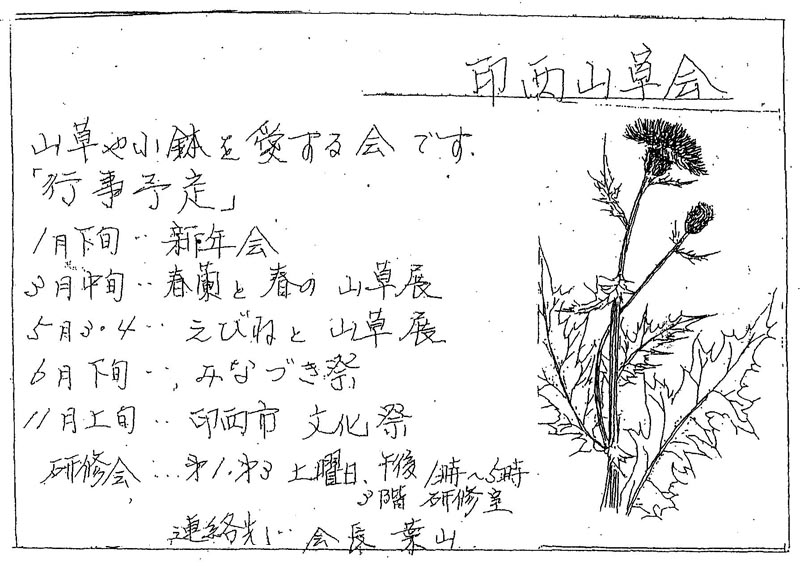 印西山草会
山草や小鉢を愛する会です.
「行事予定」
1月下旬‥新年会
3月中旬‥春蘭と春の山草展
5月3・4‥えびねと山草展
6月下旬‥みなづき祭
11月上旬‥印西市文化祭
研修会…第1.第3土曜日、午後1時〜5時
3階 研修室
連絡先:‥会長 葉山